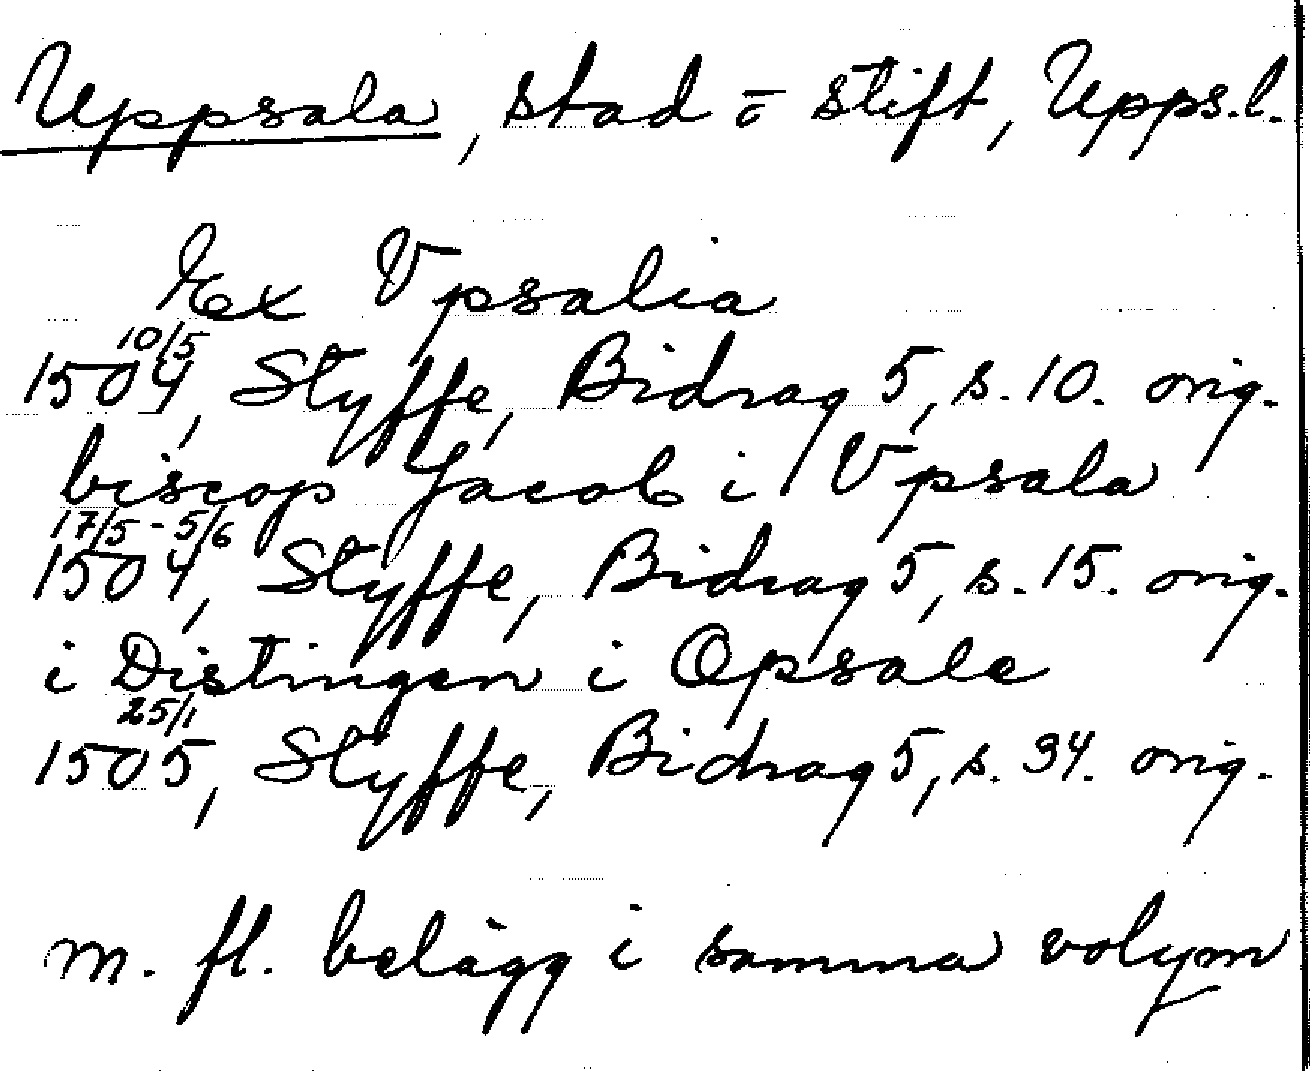 Uppsala, stad o stift, Upps.l.
Ex Vpsalia
10/5
1504, Styffe, Bidrag 5, s. 10. orig.
biscop Jacob i Vpsala
17/5 - 5/6
1504, Styffe, Bidrag 5, s. 15. orig.
i Distingen i Opsale
25/1
1505, Styffe, Bidrag 5, s. 34. orig.
m. fl. belägg i samma volym